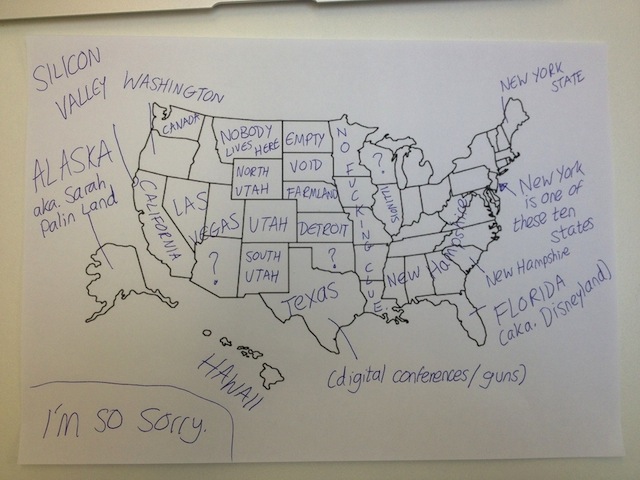 SILICON
VALLEY
WASHINGTON
NEW YORK
STATE
CANADA
NOBODY
LIVES HERE
EMPTY
NO FUCKING CLUE.
?
ALASKA
aka. Sarah
Palin Land
NORTH
UTAH
VOID
FARMLAND
ILLINOIS
New York
is one of
these ten
States
CALIFORNIA
LAS
VEGAS
UTAH
DETROIT
?
SOUTH
UTAH
?
New Hampshire
New Hampshire
Texas
FLORIDA
(aka. Disneyland)
HAWAII
(digital conferences/guns)
I'm so sorry.